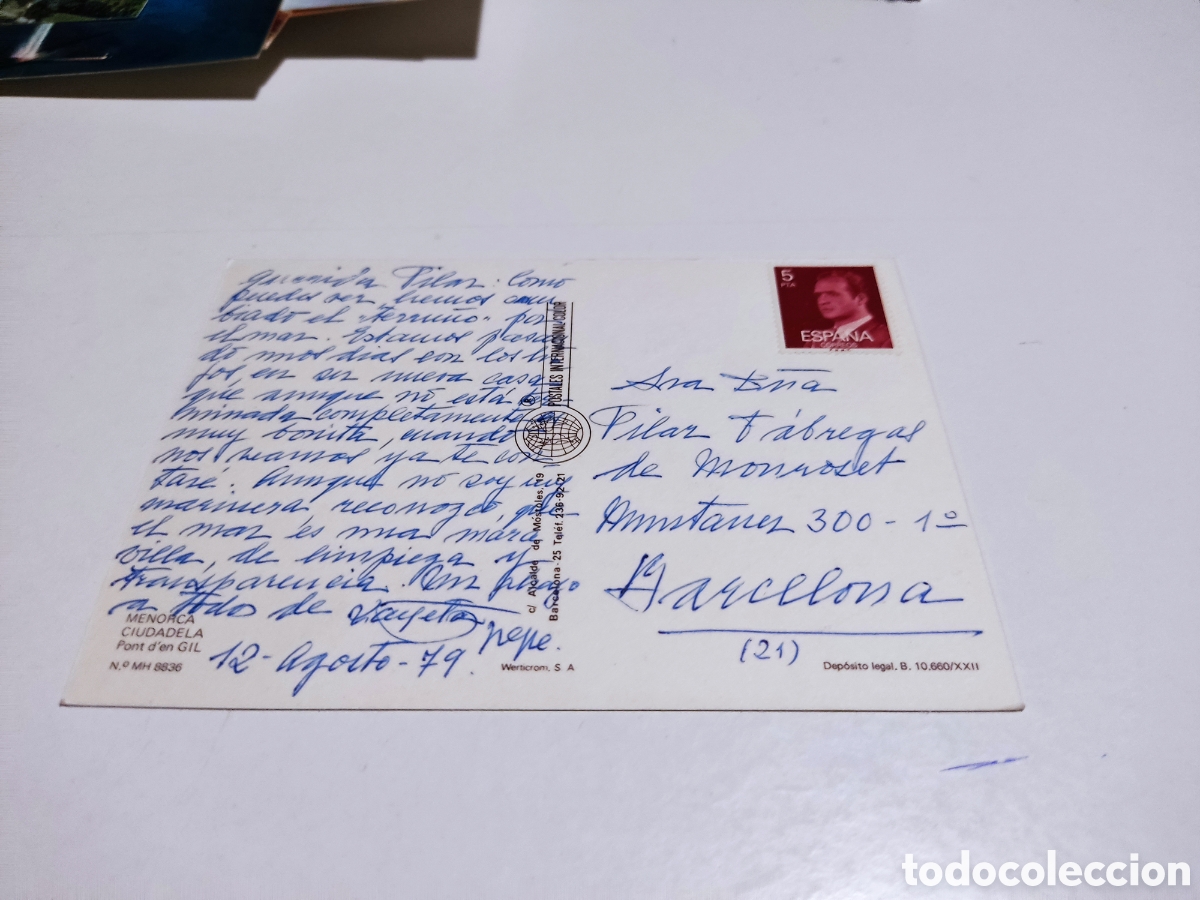 Querida Pilar: Como
puedes ver, hemos cam
biado el "terruño" por
el mar. Estamos pasan
do unos dias con los hi
jos, en su nueva casa
que aunque no está
minada completamente
muy bonita, cuando
nos veamos ya te con
taré. Aunque no soy
marinera reconozco, que
el mar es una mara
villa, de limpieza y
transparencia. Un
a todos de
Pepe.
12-Agosto-79.
MENORCA
CIUDADELA
Pont d'en GIL
N.º MH 8836
POSTALES INTERNACIONAL COLOR
®
c/ Alcalde de Móstoles, 19
Barcelona-25 Teléf. 236-92-21
Werticrom, S A
5
PTA
ESPAÑA
CORREOS
Sra Dña
Pilar Fábregas
de Monroset
Muntaner 300-1º
Barcelona
(21)
Depósito legal. B. 10.660/XXII
todocoleccion